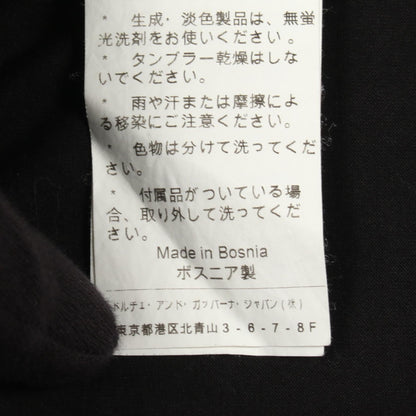 * 生成・淡色製品は、無蛍
光洗剤をお使いください。
* タンブラー乾燥はしな
いでください。
* 雨や汗または摩擦によ
る移染にご注意ください。
* 色物は分けて洗ってくだ
さい。
* 付属品がついている場
合、取り外して洗ってくだ
さい。
Made in Bosnia
ボスニア製
ドルチェ・アンド・ガッバーナ・ジャパン(株)
東京都港区北青山3-6-7-8F